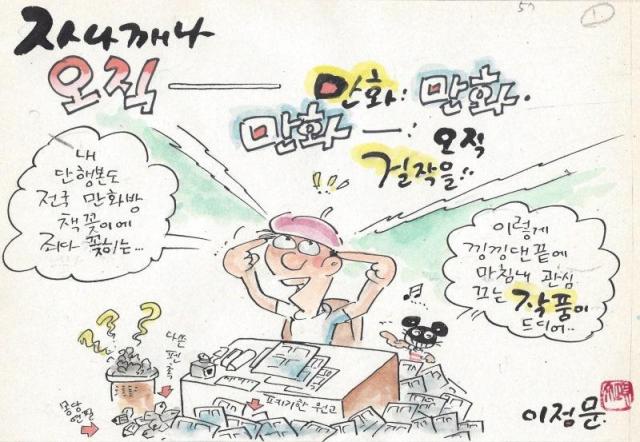 자나깨나
오직 — 만화. 만화.
만화 —. 오직
걸작을..
!!
내
단행본도
전국 만화방
책꽂이에
죄다 꽂히는...
이렇게
낑낑댄끝에
마침내 관심
끄는 작품이
드디어..
???
다쓴
펜촉
몽당
연필
포기한 원고
이정문